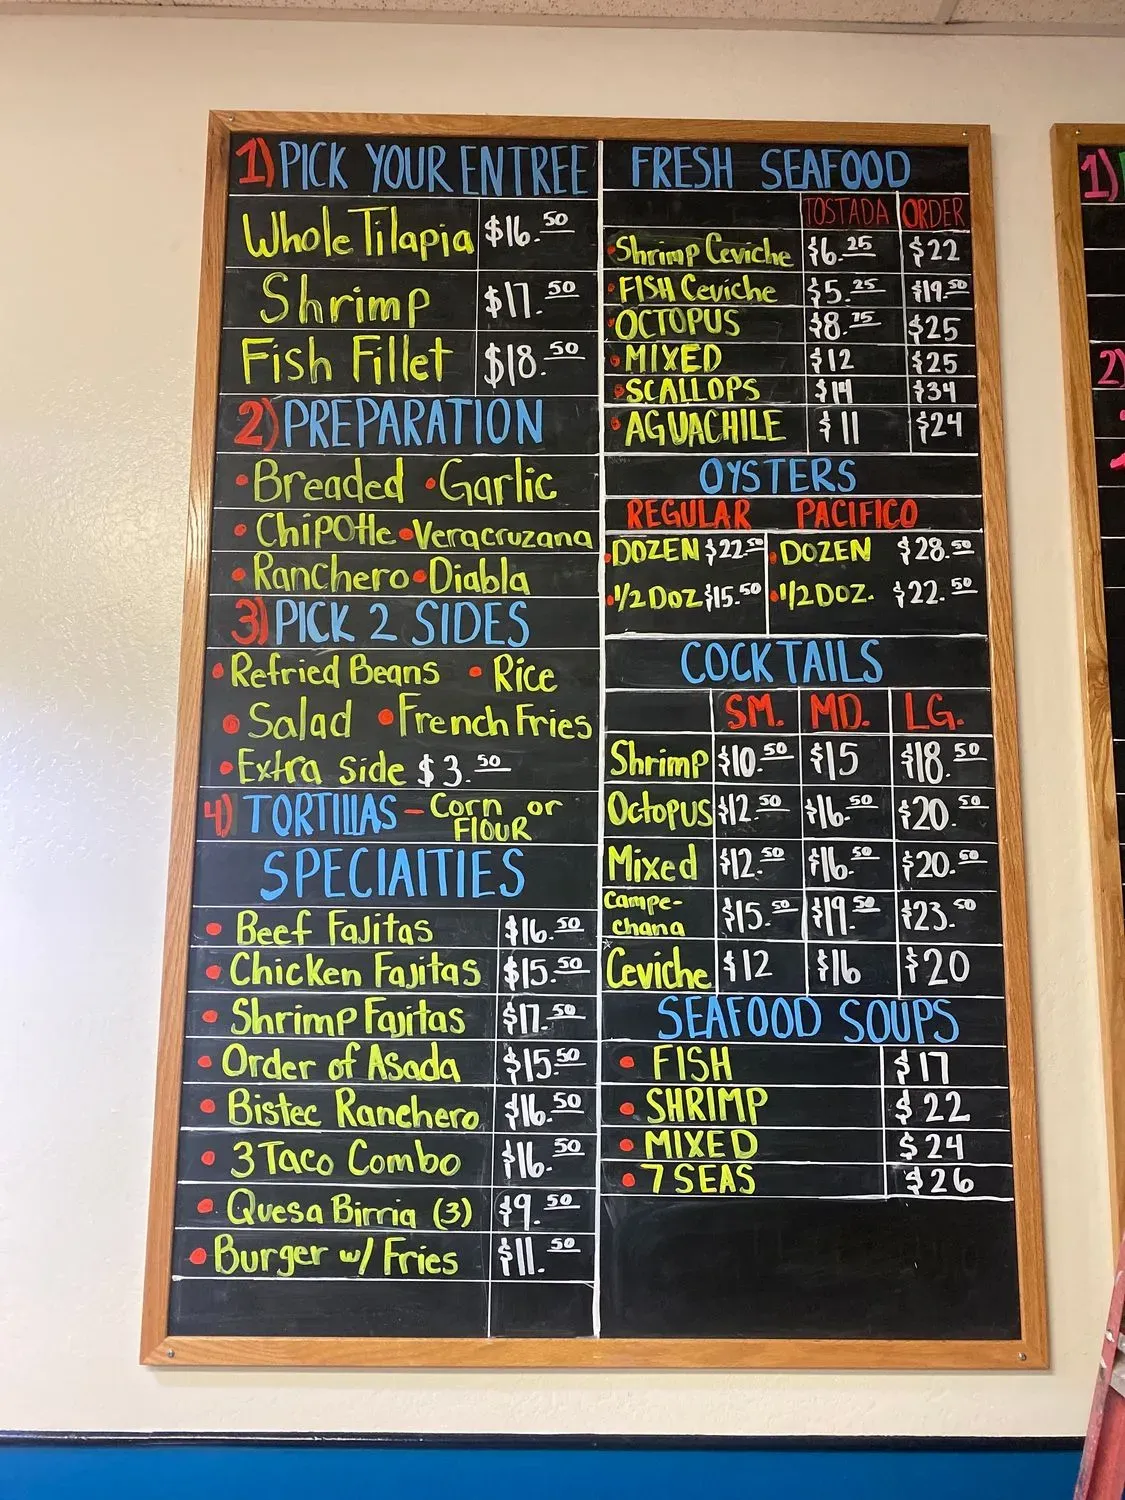 1) PICK YOUR ENTREE
Whole Tilapia $16.50
Shrimp $17.50
Fish Fillet $18.50
2) PREPARATION
• Breaded • Garlic
• Chipotle • Veracruzana
• Ranchero • Diabla
3) PICK 2 SIDES
• Refried Beans • Rice
• Salad • French Fries
• Extra side $3.50
4) TORTILLAS - Corn or
FlOUR
SPECIAlTIES
• Beef Fajitas $16.50
• Chicken Fajitas $15.50
• Shrimp Fajitas $17.50
• Order of Asada $15.50
• Bistec Ranchero $16.50
• 3 Taco Combo $16.50
• Quesa Birria (3) $9.50
• Burger w/ Fries $11.50
FRESH SEAFOOD
TOSTADA ORDER
• Shrimp Ceviche $6.25 $22
• FISH Ceviche $5.25 $19.50
• OCTOPUS $8.75 $25
• MIXED $12 $25
• SCALLOPS $14 $34
• AGUACHILE $11 $24
OYSTERS
REGULAR PACIFICO
• DOZEN $22.50 • DOZEN $28.50
• 1/2 DOZ $15.50 • 1/2 DOZ. $22.50
COCKTAILS
SM. MD. LG.
Shrimp $10.50 $15 $18.50
Octopus $12.50 $16.50 $20.50
Mixed $12.50 $16.50 $20.50
Campe-
chana $15.50 $19.50 $23.50
Ceviche $12 $16 $20
SEAFOOD SOUPS
• FISH $17
• SHRIMP $22
• MIXED $24
• 7 SEAS $26
1)
2)